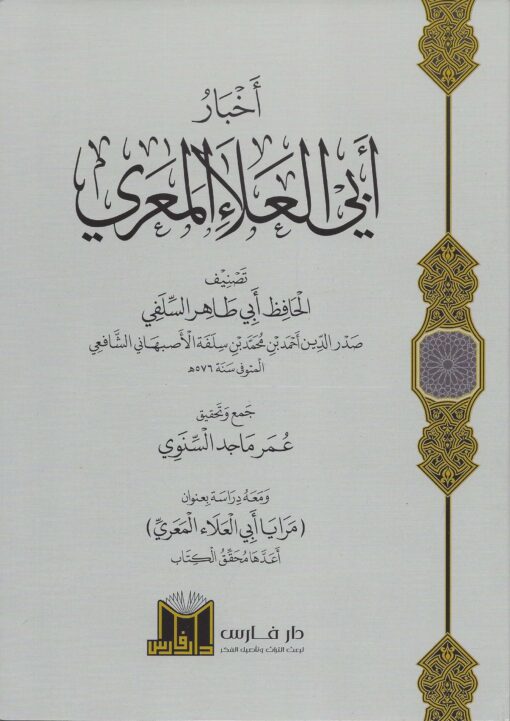 أَخْبَارُ
أَبِي العَلَاءِ المَعَرِّي
تَصْنِيْف
الْحَافِظ أَبِي طَاهِر السِّلَفِي
صَدْر الدِّين أَحْمَد بْن مُحَمَّد بْن سِلَفَة الأَصبهَاني الشَّافعِي
المتوفى سَنَة ٥٧٦هـ
جَمع وَتحقيق
عُمَر مَاجد السِّنَوِي
وَمَعَهُ دِرَاسَة بِعنوان
(مَرَايَا أَبِي الْعَلَاء الْمَعَرِّي)
أَعَدَّهَا مُحَقِّقُ الْكِتَاب
دار فارس
لبعث التراث وتأصيل الفكر
دار فارس